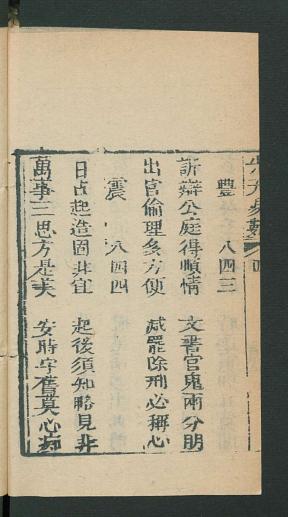 豐 八四三
訴辯公庭得順情 文書官鬼兩分朋
出官倫理多方便 減罷除刑必稱心
震 八四四
日占起造固非宜 起後須知略見非
萬事三思方是美 安時守舊莫心